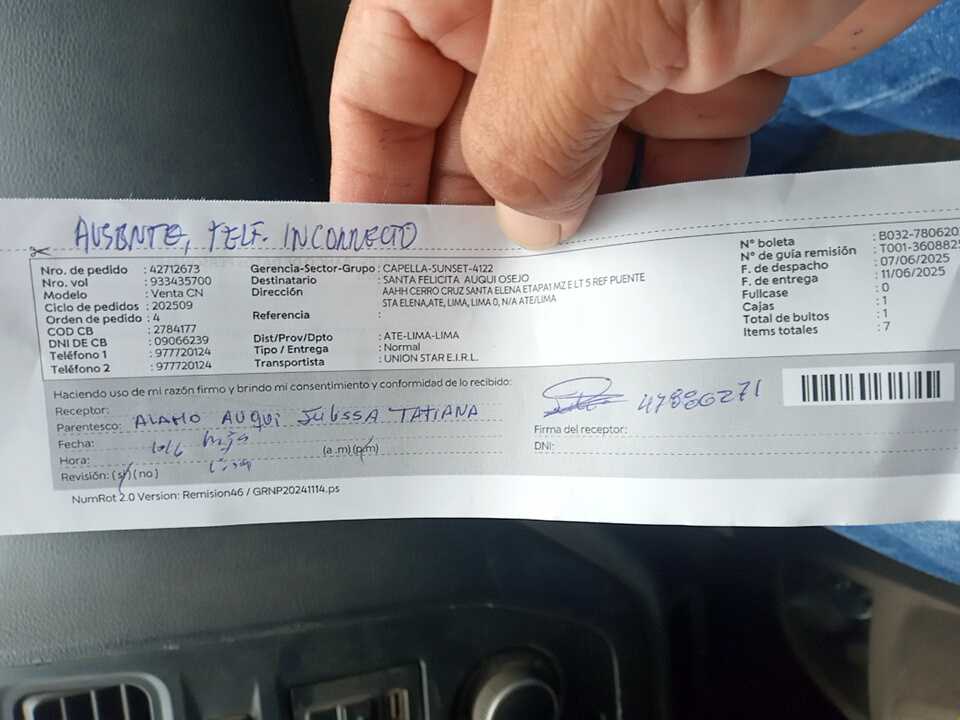 AUSENTE, TELF. INCORRECTO
Nro. de pedido : 42712673
Nro. vol : 933435700
Modelo : Venta CN
Ciclo de pedidos : 202509
Orden de pedido : 4
COD CB : 2784177
DNI DE CB : 09066239
Teléfono 1 : 977720124
Teléfono 2 : 977720124
Gerencia-Sector-Grupo : CAPELLA-SUNSET-4122
Destinatario : SANTA FELICITA AUQUI OSEJO
Dirección : AAHH CERRO CRUZ SANTA ELENA ETAPA1 MZ E LT 5 REF PUENTE
STA ELENA,ATE, LIMA, LIMA 0, N/A ATE/LIMA
Referencia :
Dist/Prov/Dpto : ATE-LIMA-LIMA
Tipo / Entrega : Normal
Transportista : UNION STAR E.I.R.L.
N° boleta : B032-7806207
N° de guía remisión : T001-3608825
F. de despacho : 07/06/2025
F. de entrega : 11/06/2025
Fullcase : 0
Cajas : 1
Total de bultos : 1
Items totales : 7
Haciendo uso de mi razón firmo y brindo mi consentimiento y conformidad de lo recibido:
Receptor: ALAMO AUQUI JULISSA TATIANA
Parentesco: hija
Fecha:
Hora: (a .m)(p/m)
Revisión: (si)(no)
47886271
Firma del receptor:
DNI:
NumRot 2.0 Version: Remision46 / GRNP20241114.ps